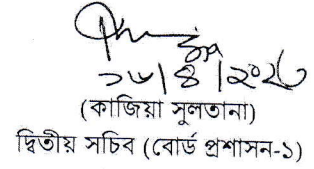 ১৬|৪|২০২৬
(কাজিয়া সুলতানা)
দ্বিতীয় সচিব (বোর্ড প্রশাসন-১)